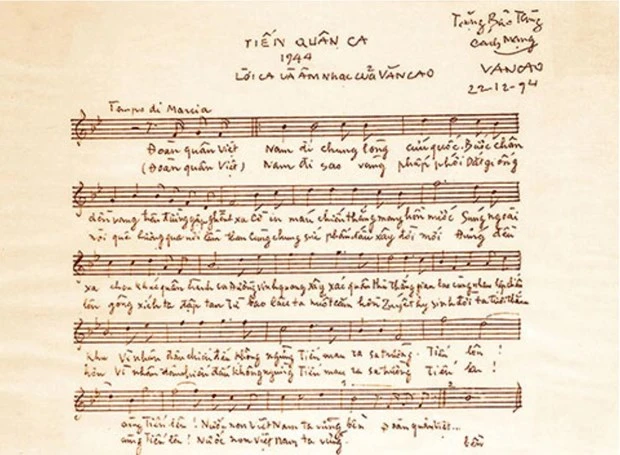 TIẾN QUÂN CA
1944
LỜI CA VÀ ÂM NHẠC CỦA VĂN CAO
Tặng Bảo Tàng
Cách Mạng
VĂN CAO
22-12-94
Tempo di Marcia
Đoàn quân Việt Nam đi chung lòng cứu quốc. Bước chân
(Đoàn quân Việt) Nam đi sao vàng phấp phới Dắt giống
dồn vang trên đường gập ghềnh xa Cờ in máu chiến thắng mang hồn nước Súng ngoài
nòi quê hương qua nơi lầm than Cùng chung sức phấn đấu xây đời mới Đứng đều
xa chen khúc quân hành ca Đường vinh quang xây xác quân thù Thắng gian lao cùng nhau lập chiến
lên gông xích ta đập tan Từ bao lâu ta nuốt căm hờn Quyết hy sinh đời ta tươi thắm
khu Vì nhân dân chiến đấu không ngừng Tiến mau ra sa trường. Tiến lên!
hơn Vì nhân dân chiến đấu không ngừng Tiến mau ra sa trường Tiến lên!
cùng Tiến lên! Nước non Việt Nam ta vững bền Đoàn quân Việt...
cùng Tiến lên! Nước non Việt Nam ta vững bền